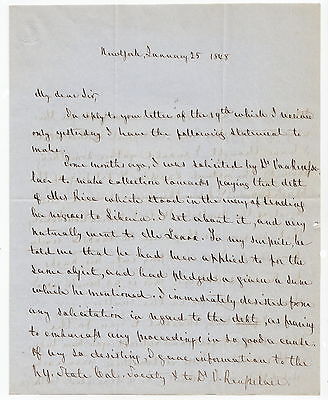 New York, January 25 1848
My dear Sir,
In reply to your letter of the 19th which I receive
only yesterday I have the following statement to
make.
Some months ago, I was solicited by Dr Van Rensse
laer to make collection towards paying that debt
of Mrs Rice which stood in the way of sending
her negroes to Liberia. I set about it, and very
naturally went to Mr
To my surprise, he
told me that he had been applied to for the
same object, and had pledged a given a sum
which he mentioned. I immediately desisted from
any solicitation in regard to the debt, as fearing
to embarrass any proceedings in so good a cause.
Of my so desisting, I gave information to the
N.Y. State Col. Society & to Dr V. Rensselaer.